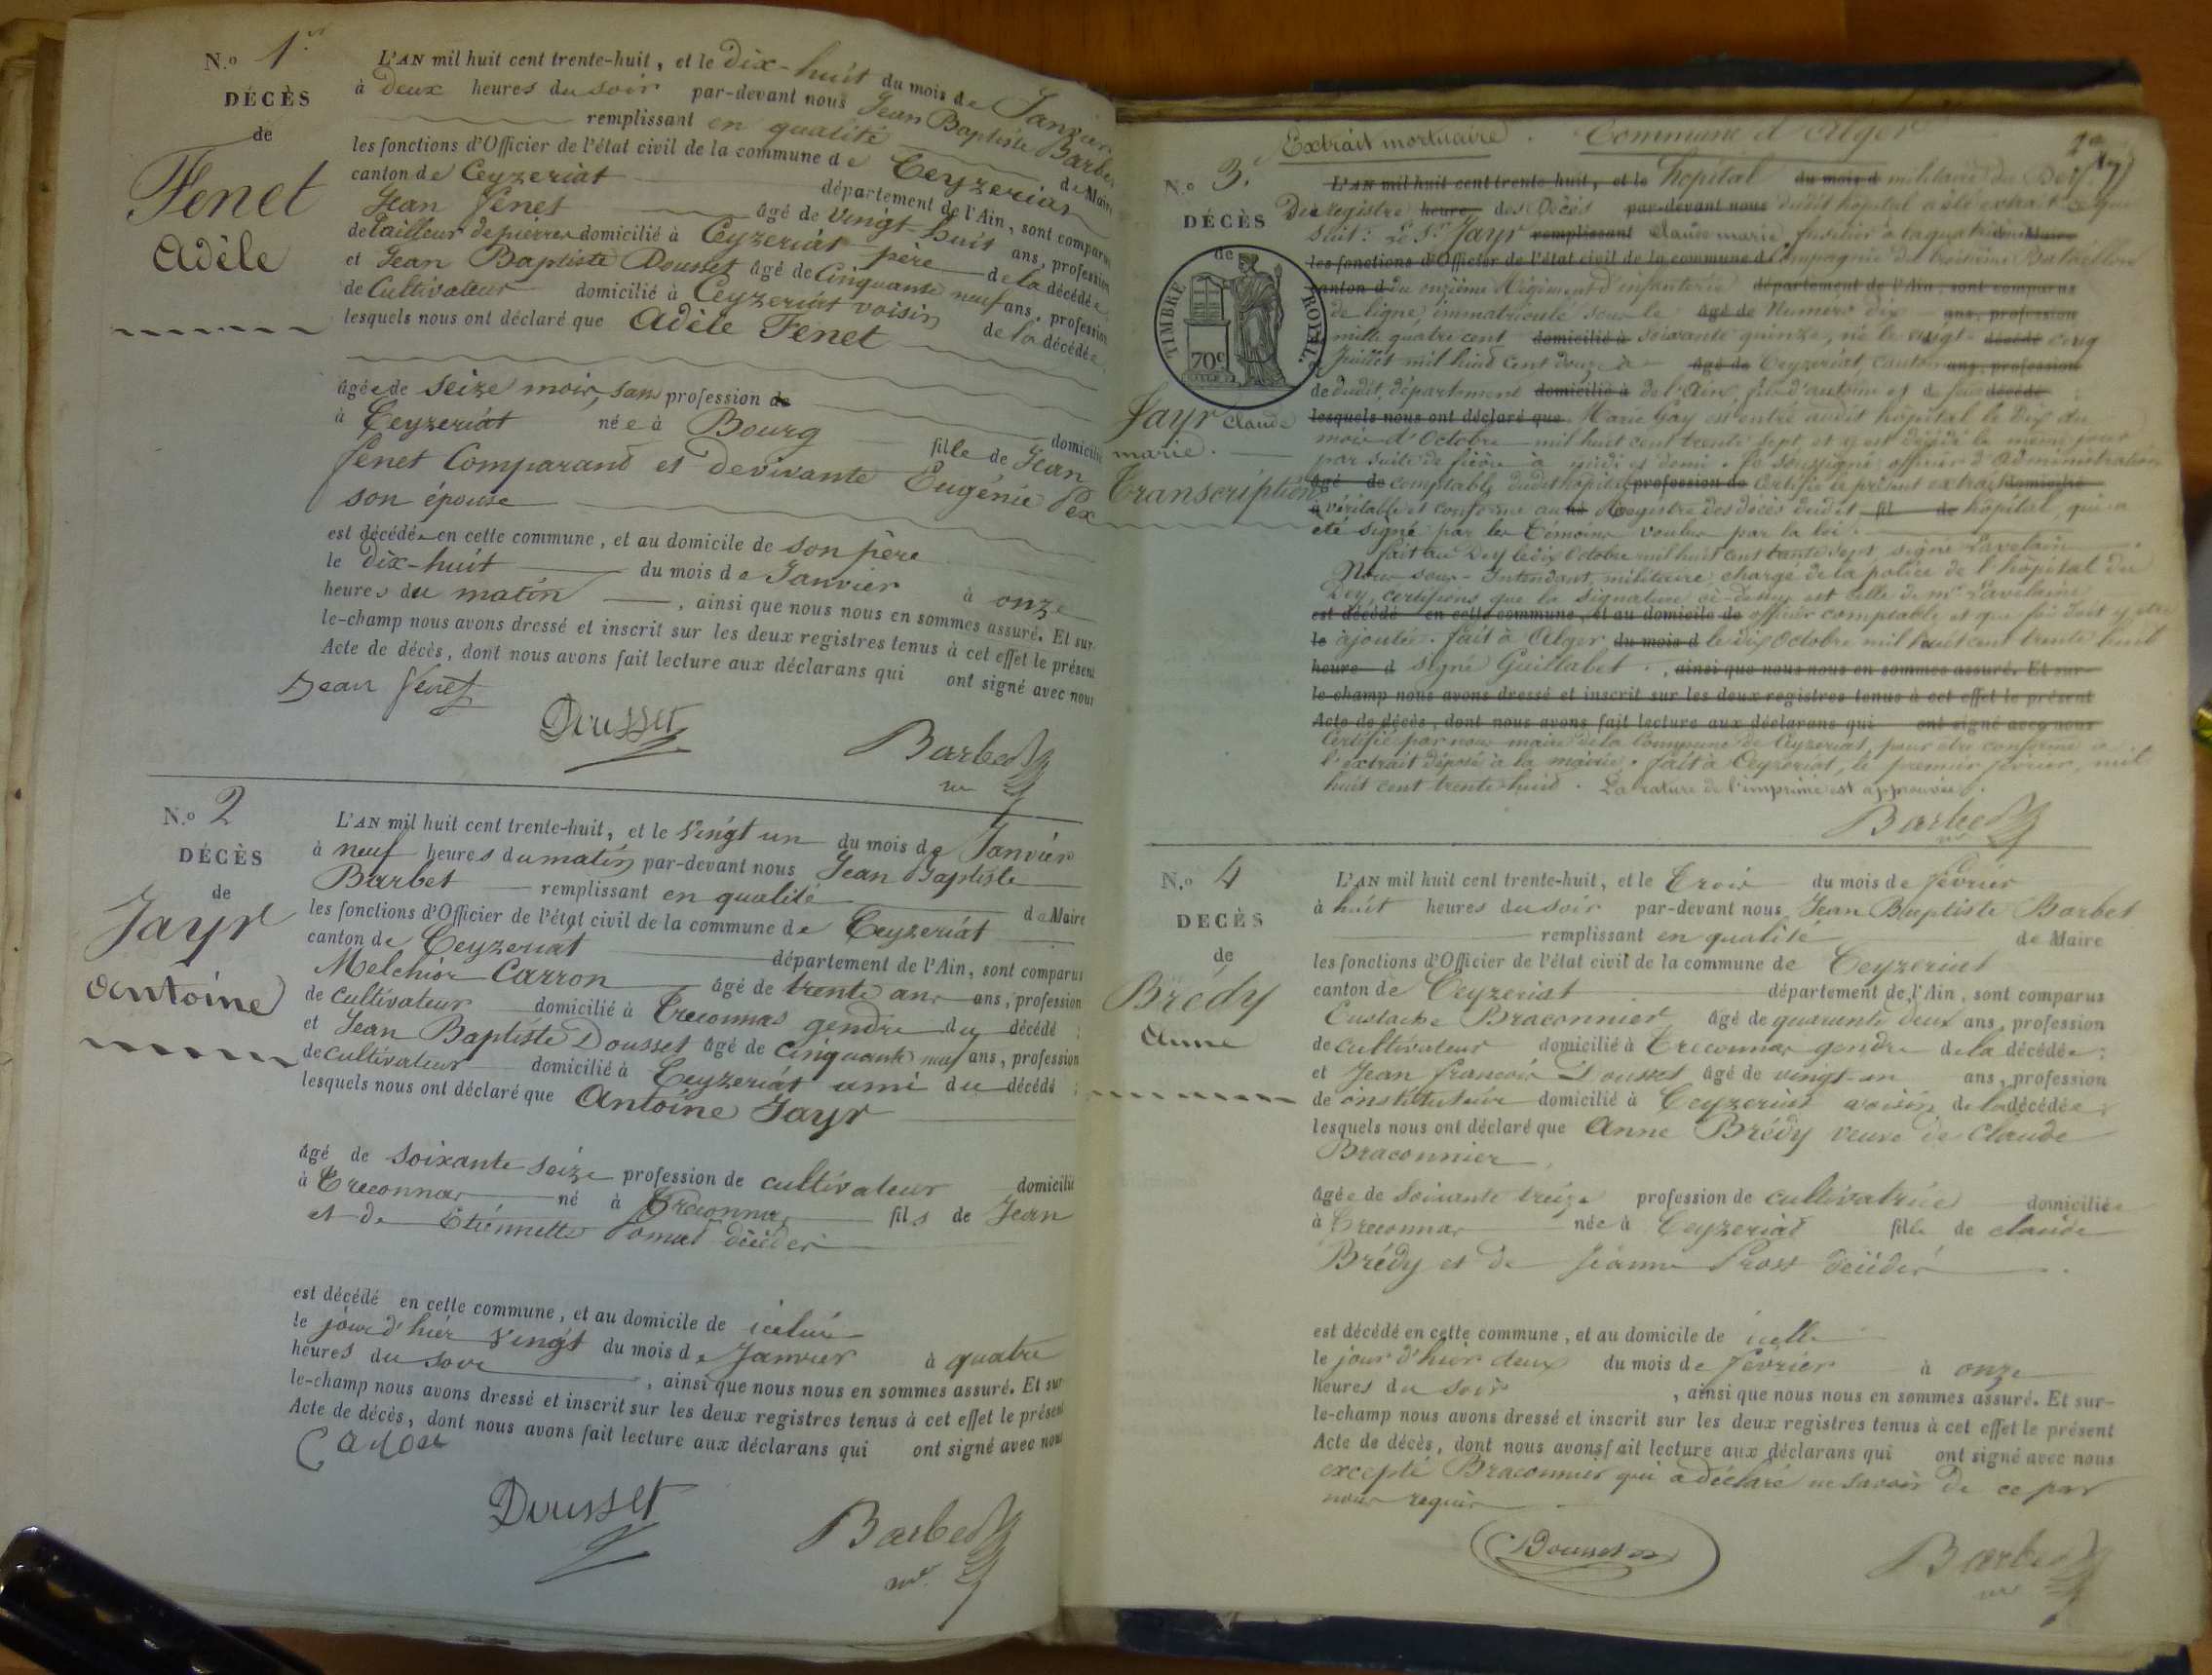 N.o 1.er
DÉCÈS
de
Fenet
Adèle
L'AN mil huit cent trente-huit, et le Dix-huit du mois de Janvier
à Deux heures du soir par-devant nous Jean Baptiste Barbet
remplissant en qualité de Maire
les fonctions d'Officier de l'état civil de la commune de Ceyzeriat
canton de Ceyzeriat département de l'Ain, sont comparus
Jean Fenet âgé de vingt-huit ans, profession
de tailleur de pierres domicilié à Ceyzeriat père de la décédée
et Jean Baptiste Dousset âgé de Cinquante neuf ans, profession
de Cultivateur domicilié à Ceyzeriat voisin de la décédée
lesquels nous ont déclaré que Adèle Fenet
âgée de seize mois, sans profession de domicilié
à Ceyzeriat née à Bourg fille de Jean
fenet Comparant et de vivante Eugénie Dex
son épouse
est décédée en cette commune, et au domicile de son père
le Dix-huit du mois de Janvier à onze
heures du matin, ainsi que nous nous en sommes assuré. Et sur-
le-champ nous avons dressé et inscrit sur les deux registres tenus à cet effet le présent
Acte de décès, dont nous avons fait lecture aux déclarans qui ont signé avec nous
Jean fenet
Dousset
Barbet
N.o 2
DÉCÈS
de
Jayr
Antoine
L'AN mil huit cent trente-huit, et le vingt un du mois de Janvier
à neuf heures du matin par-devant nous Jean Baptiste
Barbet remplissant en qualité de Maire
les fonctions d'Officier de l'état civil de la commune de Ceyzeriat
canton de Ceyzeriat département de l'Ain, sont comparus
Melchior Carron âgé de trente ans ans, profession
de cultivateur domicilié à Treconnas gendre du décédé ;
et Jean Baptiste Dousset âgé de cinquante neuf ans, profession
de cultivateur domicilié à Ceyzeriat ami du décédé ;
lesquels nous ont déclaré que Antoine Jayr
âgé de soixante seize profession de cultivateur domicilié
à Treconnas né à Treconnas fils de Jean
et de Etiennette décédés
est décédé en cette commune, et au domicile de icelui
le jour d'hier vingt du mois de Janvier à quatre
heures du soir, ainsi que nous nous en sommes assuré. Et sur
le-champ nous avons dressé et inscrit sur les deux registres tenus à cet effet le présent
Acte de décès, dont nous avons fait lecture aux déclarans qui ont signé avec nous
Dousset
Barbet
Extrait mortuaire. Commune d'Alger
N.o 3.
DÉCÈS
de
TIMBRE ROYAL.
70c
Jayr Claude
marie.
Transcription
L'AN mil huit cent trente-huit, et le hôpital du mois d militaire du Dey.
Du registre heure des Décès par-devant nous dudit hôpital a été extrait ce qui
suit: Le Sr. Jayr remplissant Claude marie, fusilier à la quatrième de Maire
les fonctions d'Officier de l'état civil de la commune d Compagnie du troisième Bataillon
canton d du onzième Régiment d'infanterie département de l'Ain, sont comparus
de ligne, immatriculé sous le âgé de Numéro dix ans, profession
mille quatre cent domicilié à soixante quinze, né le vingt décédé cinq
Juillet mil huit cent douze à âgé de Ceyzeriat, canton ans, profession
de dudit, département domicilié à de l'Ain, fils d'antoine et de feue décédé
lesquels nous ont déclaré que Marie Gay est entré audit hôpital le Dix du
mois d'Octobre mil huit cent trente sept, et y est décédé le même jour
par suite de fièvre à midi et demi. Je soussigné officier d'administration
âgé de comptable dudit hôpital profession de certifie le présent extrait domicilié
à véritable et conforme au né Registre des décès dudit fil de hôpital, qui a
été signé par les Témoins voulus par la loi.
fait au Dey le dix Octobre mil huit cent trente sept, signé Lavelain
Nous sous-Intendant militaire chargé de la police de l'hôpital du
Dey, certifions que la signature ci-dessus est celle de Mr. Lavelaine
est décédé en cette commune, et au domicile de officier comptable et que foi doit y être
le ajoutée. fait à Alger du mois d le dix Octobre mil huit cent trente huit
heure d signé Guillabet. , ainsi que nous nous en sommes assuré. Et sur-
le-champ nous avons dressé et inscrit sur les deux registres tenus à cet effet le présent
Acte de décès, dont nous avons fait lecture aux déclarans qui ont signé avec nous
Certifié par nous maire de la Commune de Ceyzeriat, pour être conforme à
l'extrait déposé à la mairie. fait à Ceyzeriat, le premier février, mil
huit cent trente huit. La rature de l'imprimé est approuvée.
Barbet
N.o 4
DÉCÈS
de
Brédy
Anne
L'AN mil huit cent trente-huit, et le Trois du mois de février
à huit heures du soir par-devant nous Jean Baptiste Barbet
remplissant en qualité de Maire
les fonctions d'Officier de l'état civil de la commune de Ceyzeriat
canton de Ceyzeriat département de l'Ain, sont comparus
Eustache Braconnier âgé de quarante deux ans, profession
de cultivateur domicilié à Treconnas gendre de la décédée ;
et Jean francois Dousset âgé de vingt-un ans, profession
de instituteur domicilié à Ceyzeriat voisin de la décédée ;
lesquels nous ont déclaré que Anne Brédy veuve de Claude
Braconnier
âgée de soixante treize profession de cultivatrice domiciliée
à Treconnas née à Ceyzeriat fille de claude
Brédy et de Jeanne Prost décédés
est décédé en cette commune, et au domicile de icelle
le jour d'hier deux du mois de février à onze
heures du soir, ainsi que nous nous en sommes assuré. Et sur-
le-champ nous avons dressé et inscrit sur les deux registres tenus à cet effet le présent
Acte de décès, dont nous avons fait lecture aux déclarans qui ont signé avec nous
excepté Braconnier qui a déclaré ne savoir de ce par
nous requis
Dousset
Barbet